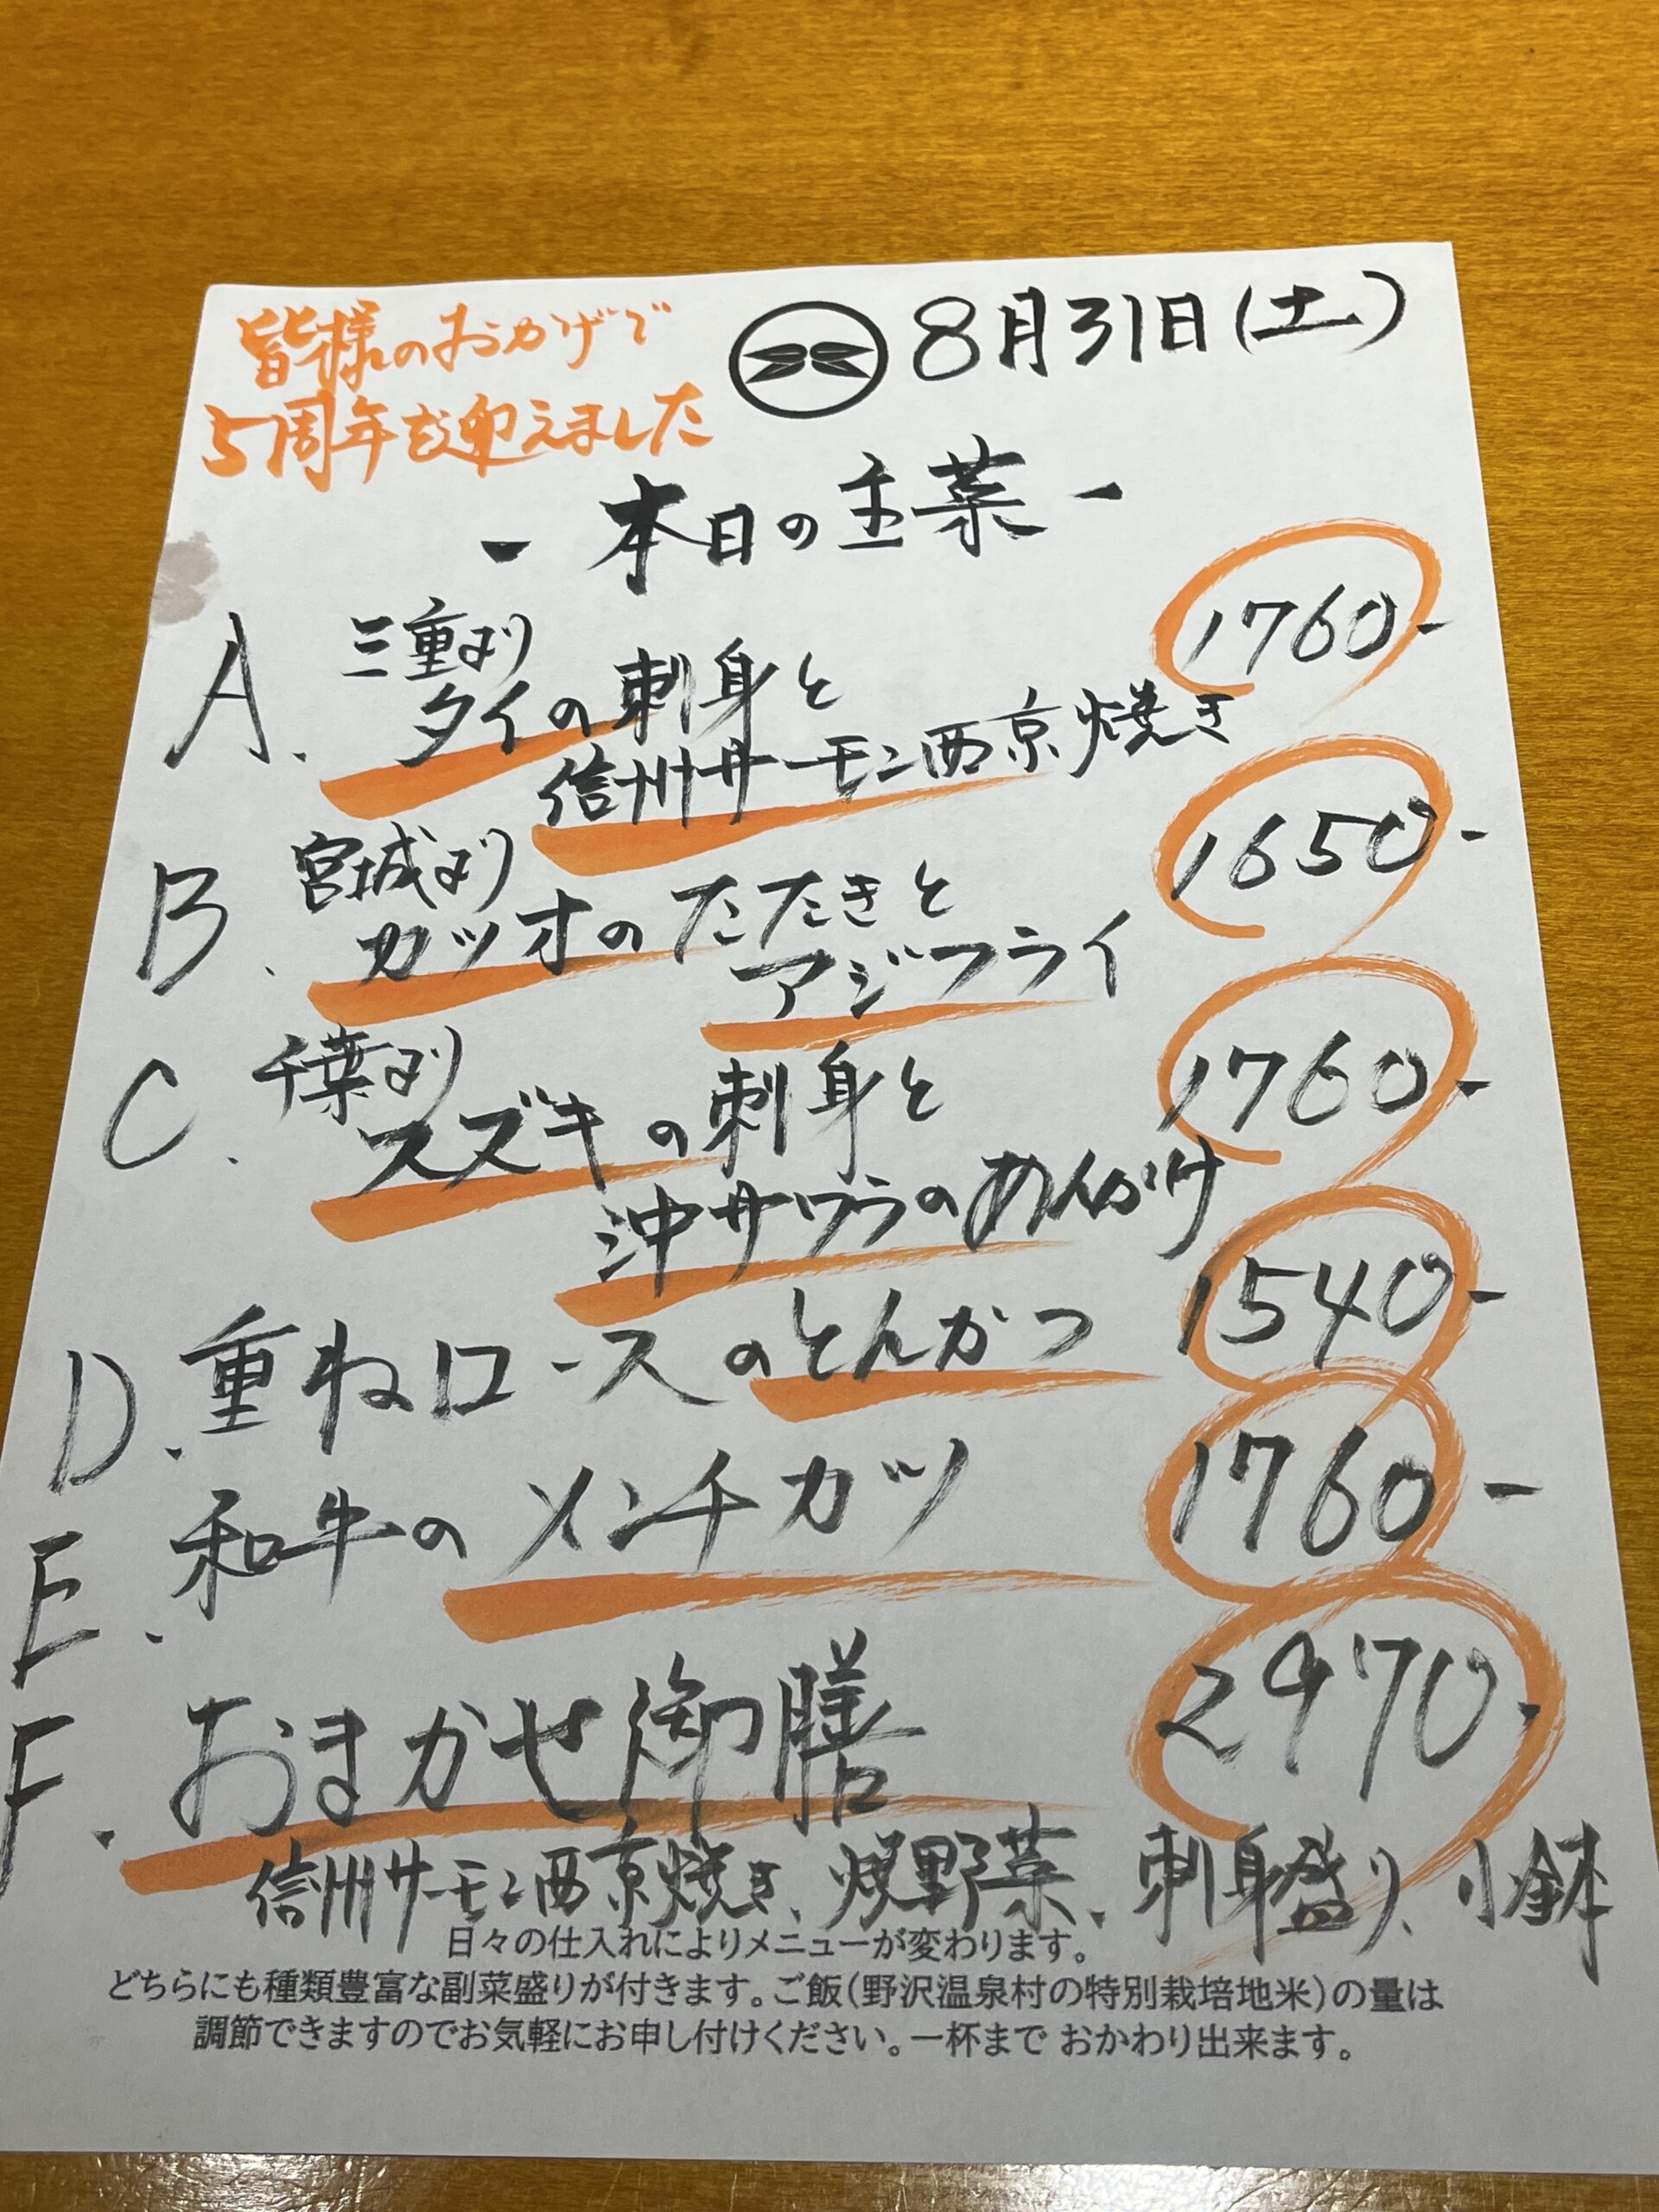 皆様のおかげで
5周年を迎えました
8月31日(土)
- 本日の主菜 -
A. 三重より
タイの刺身と
信州サーモン西京焼き
1760-
B. 宮城より
カツオのたたきと
アジフライ
1650-
C. 千葉より
スズキの刺身と
沖サワラのあんかけ
1760-
D. 重ねロースのとんかつ 1540-
E. 和牛のメンチカツ 1760-
F. おまかせ御膳 2970-
信州サーモン西京焼き、焼野菜、刺身盛り、小鉢
日々の仕入れによりメニューが変わります。
どちらにも種類豊富な副菜盛りが付きます。ご飯(野沢温泉村の特別栽培地米)の量は
調節できますのでお気軽にお申し付けください。一杯まで おかわり出来ます。